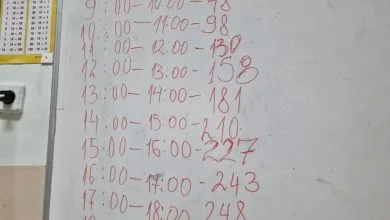 9:00-10:00-78
10:00-11:00-98
11:00-12:00-130
12:00-13:00-158
13:00-14:00-181
14:00-15:00-210
15:00-16:00-227
16:00-17:00-243
17:00-18:00-248